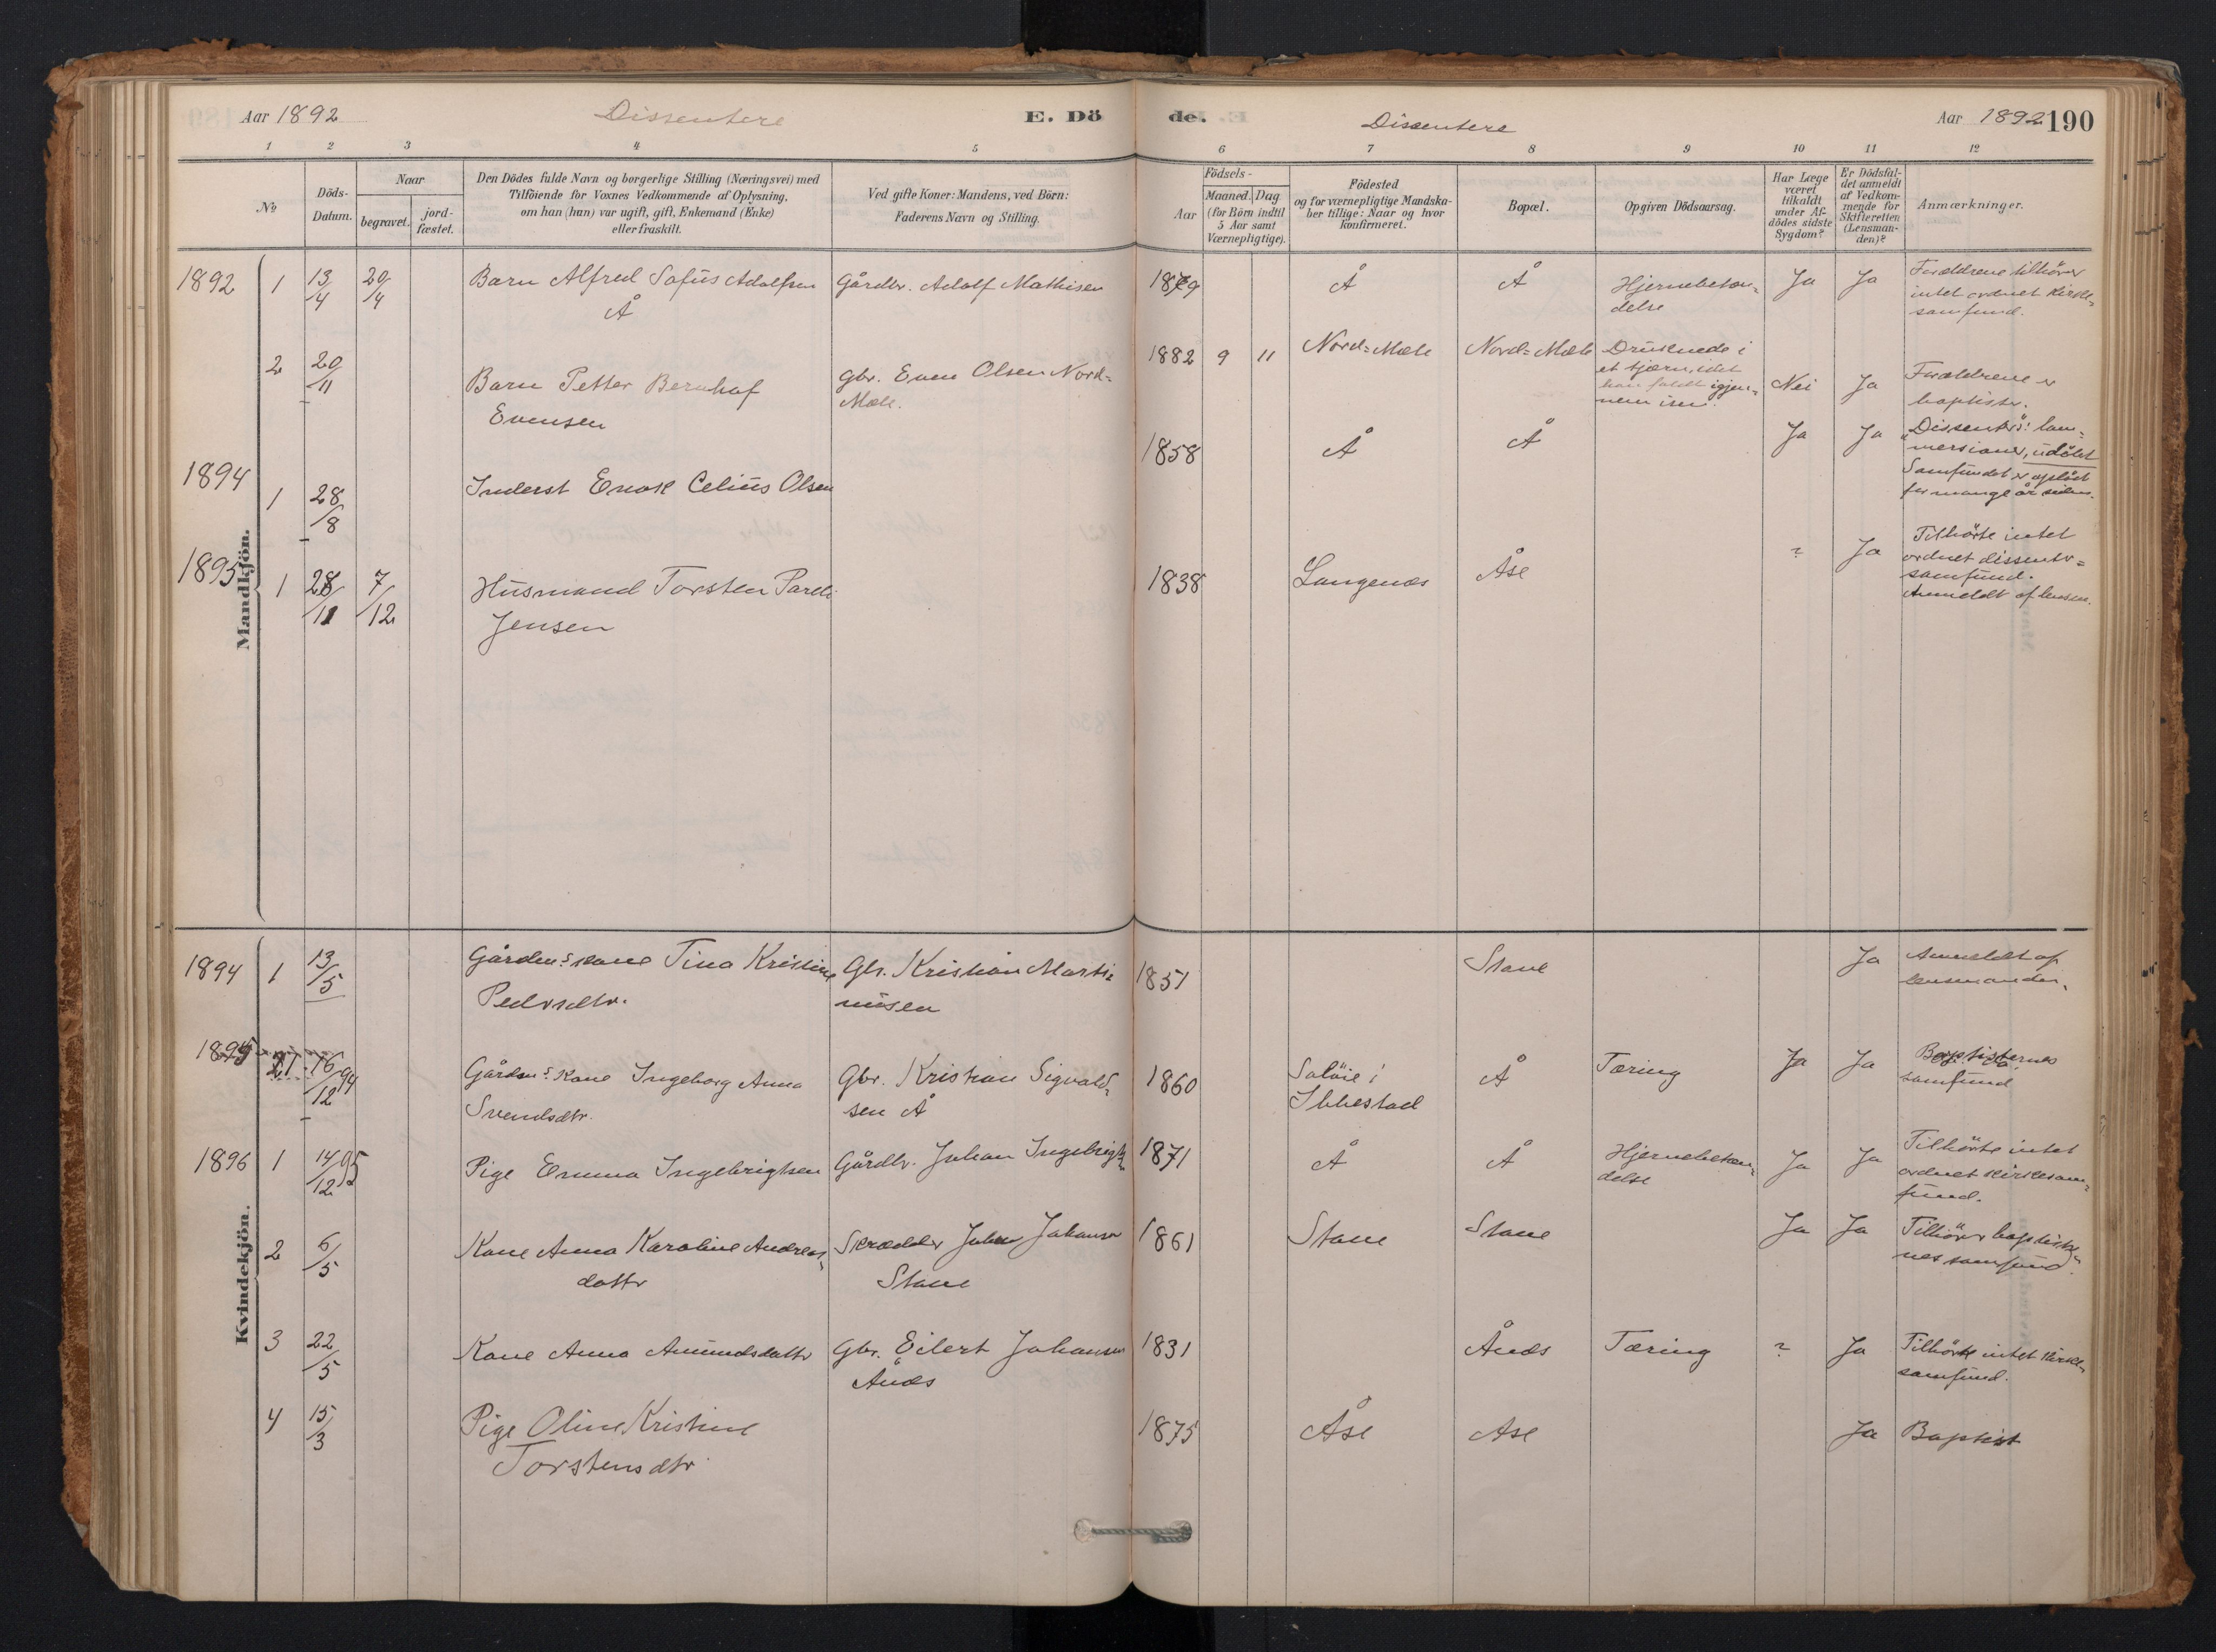 Aar 1892 Dissentere E. Döde. Dissentere Aar 1892 190
1 2 3 4 5 6 7 8 9 10 11 12
No
Döds-
Datum.
Naar
begravet.
jord-
fæstet.
Den Dödes fulde Navn og borgerlige Stilling (Næringsvei) med
Tilföiende for Voxnes Vedkommende af Oplysning,
om han (hun) var ugift, gift, Enkemand (Enke)
eller fraskilt.
Ved gifte Koner: Mandens, ved Börn:
Faderens Navn og Stilling.
Födsels-
Aar
Maaned. Dag
(for Börn indtil
5 Aar samt
Værnepligtige).
Födested
og for værnepligtige Mandska-
ber tillige: Naar og hvor
konfirmeret.
Bopæl.
Opgiven Dödsaarsag.
Har Læge
været
tilkaldt
under Af-
dödes sidste
Sygdom?
Er Dödsfal-
det anmeldt
af Vedkom-
mende for
Skifteretten
(Lensman-
den)?
Anmærkninger.
Mandkjön.
1892 1 13/4 20/4 Barn Alfred Sofus Adolfsen Gårdbr. Adolf Mathisen 1879 Å Å Hjernebetæn- Ja Ja Forældrene tilhörer
Å delse intet ordnet kirke-
samfund.
2 20/11 Barn Petter Bernhof Gbr. Even Olsen Nord- 1882 9 11 Nord-Mæle Nord-Mæle Druknede i
Evensen Mæle. et tjærn, idet
han faldt igjen- Nei Ja Forældrene er
nem isen. baptister.
1894 1 28/8 Inderst Enok Celius Olsen 1858 Å Å Ja Ja Dissenter: lam-
mersianer, udölet
Samfundet er oplöst
for mange år siden.
1895 1 28/11 7/12 Husmand Torsten Pareli 1838 Langenæs Åse ? Ja Tilhörte intet
Jensen ordnet dissenter-
samfund.
Anmeldt af lensm.
Kvindekjön.
1894 1 13/5 Gårdm.s kone Tina Kristine Gbr. Kristian Marti- 1851 Stave Ja Anmeldt af
Pedersdtr. nusen lensmanden.
1895 1 16/12 94 Gårdm.s kone Ingeborg Anna Gbr. Kristian Sigvald- 1860 Salöie i Å Tæring Ja Ja Baptisternes
Svendsdtr. sen Å Ibbestad samfund
1896 1 14/12 95 Pige Emma Ingebrigtsen Gårdbr. Johan Ingebrigts. 1871 Å Å Hjernebetæn- Ja Ja Tilhörte intet
delse ordnet kirkesam-
fund.
2 6/5 Kone Anna Karoline Andreas- Skrædder Johan Johansen 1861 Stave Stave Ja Ja Tilhörer baptister-
datter Stave nes samfund.
3 22/5 Kone Anna Amundsdatter Gbr. Eilert Johansen 1831 Ånæs Tæring ? Ja Tilhörte intet kirke-
Ånæs samfund.
4 15/3 Pige Oline Kristine 1875 Åse Åse Ja Baptist
Torstensdtr